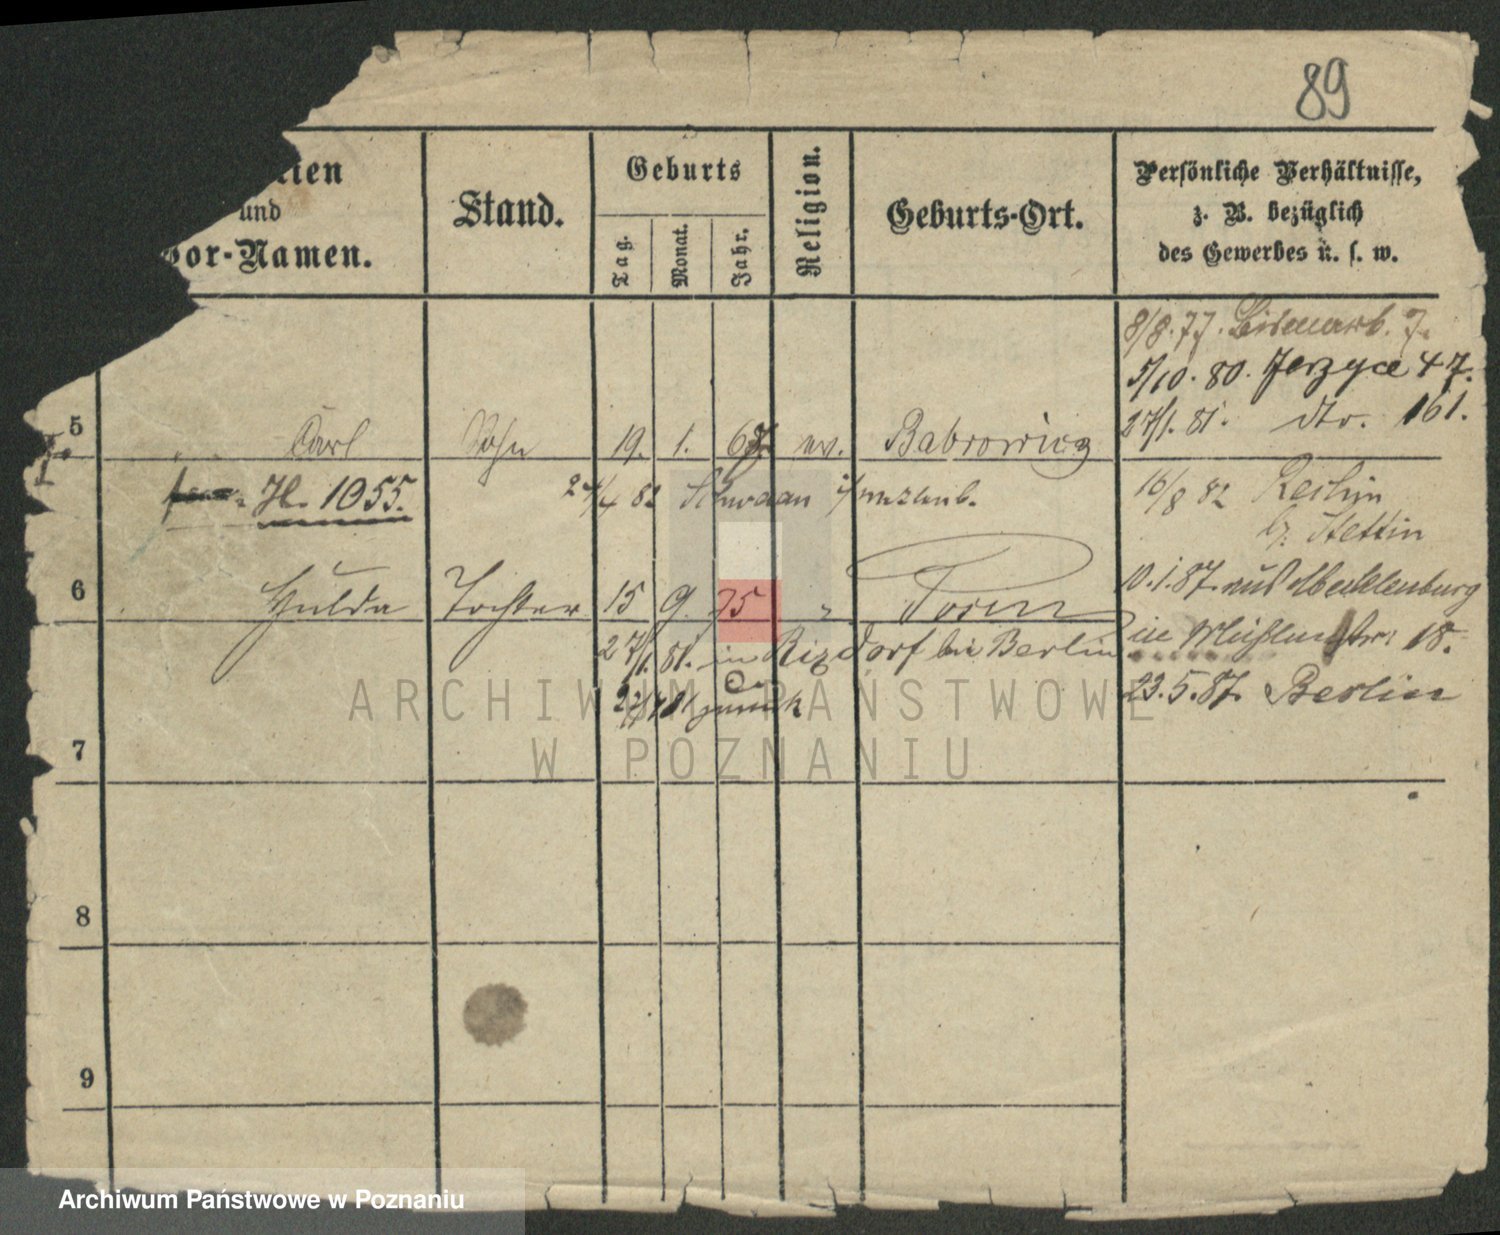 89
und
or-Namen.
Stand.
Geburts
Tag.
Monat.
Jahr.
Religion.
Geburts-Ort.
Persönliche Verhältnisse,
z. B. bezüglich
des Gewerbes u. s. w.
8/8.77. Bismarck. 7.
5/10. 80. Jerzyce 47.
27/1. 81. dto. 161.
5 Carl Sohn 19. 1. 67 ev. Babrowicz
H. 1055. 24/4 82 Schwaan i/ 16/8 82
b/ Stettin
6 Hulda Tochter 15 9. 75 " Posen
10.1.87. aus Mecklenburg
27/1. 81. in Rixdorf bei Berlin
in 18.
zurück
23.5.87. Berlin
7
8
9
ARCHIWUM PAŃSTWOWE
W POZNANIU
Archiwum Państwowe w Poznaniu